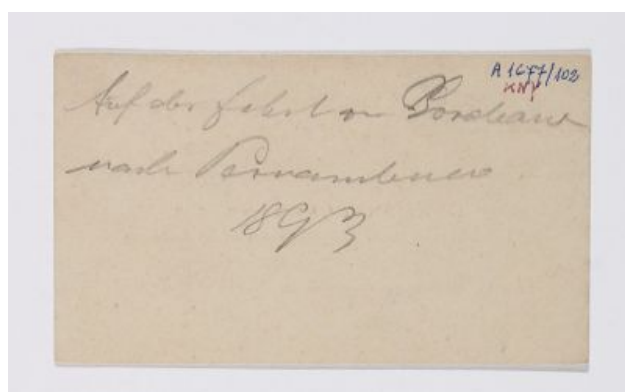 A 1677/102
KNY
Auf der Fahrt von Bordeaux
nach Pernambuco.
1893